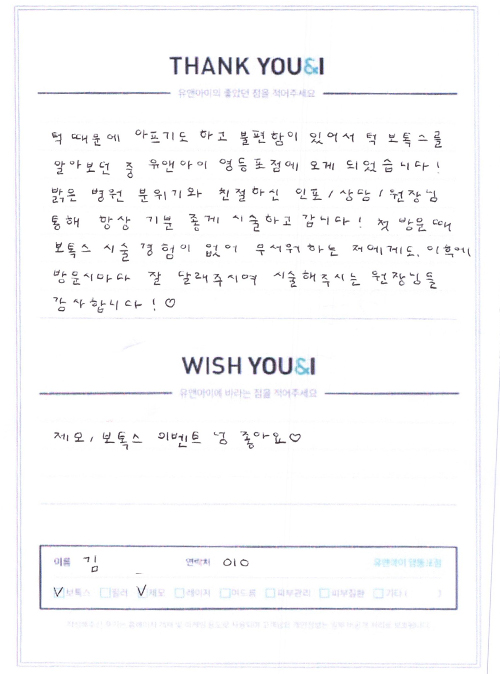 THANK YOU&I
유앤아이의 좋았던 점을 적어주세요
턱 때문에 아프기도 하고 불편함이 있어서 턱 보톡스를
알아보던 중 유앤아이 영등포점에 오게 되었습니다!
밝은 병원 분위기와 친절하신 인포/상담/원장님
통해 항상 기분 좋게 시술하고 갑니다! 첫 방문 때
보톡스 시술 경험이 없어 무서워 하는 저에게도, 이후에
방문시마다 잘 달래주시며 시술해주시는 원장님들
감사합니다! ♡
WISH YOU&I
유앤아이에 바라는 점을 적어주세요
제모, 보톡스 이벤트 넘 좋아요♡
이름 김 연락처 010 유앤아이 영등포점
보톡스 필러 제모 레이저 여드름 피부관리 피부질환 기타 ( )